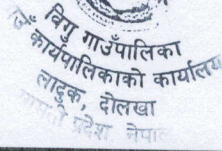 विगु गाउँपालिका
गाउँ कार्यपालिकाको कार्यालय
लादुक, दोलखा
प्रदेश नेपाल